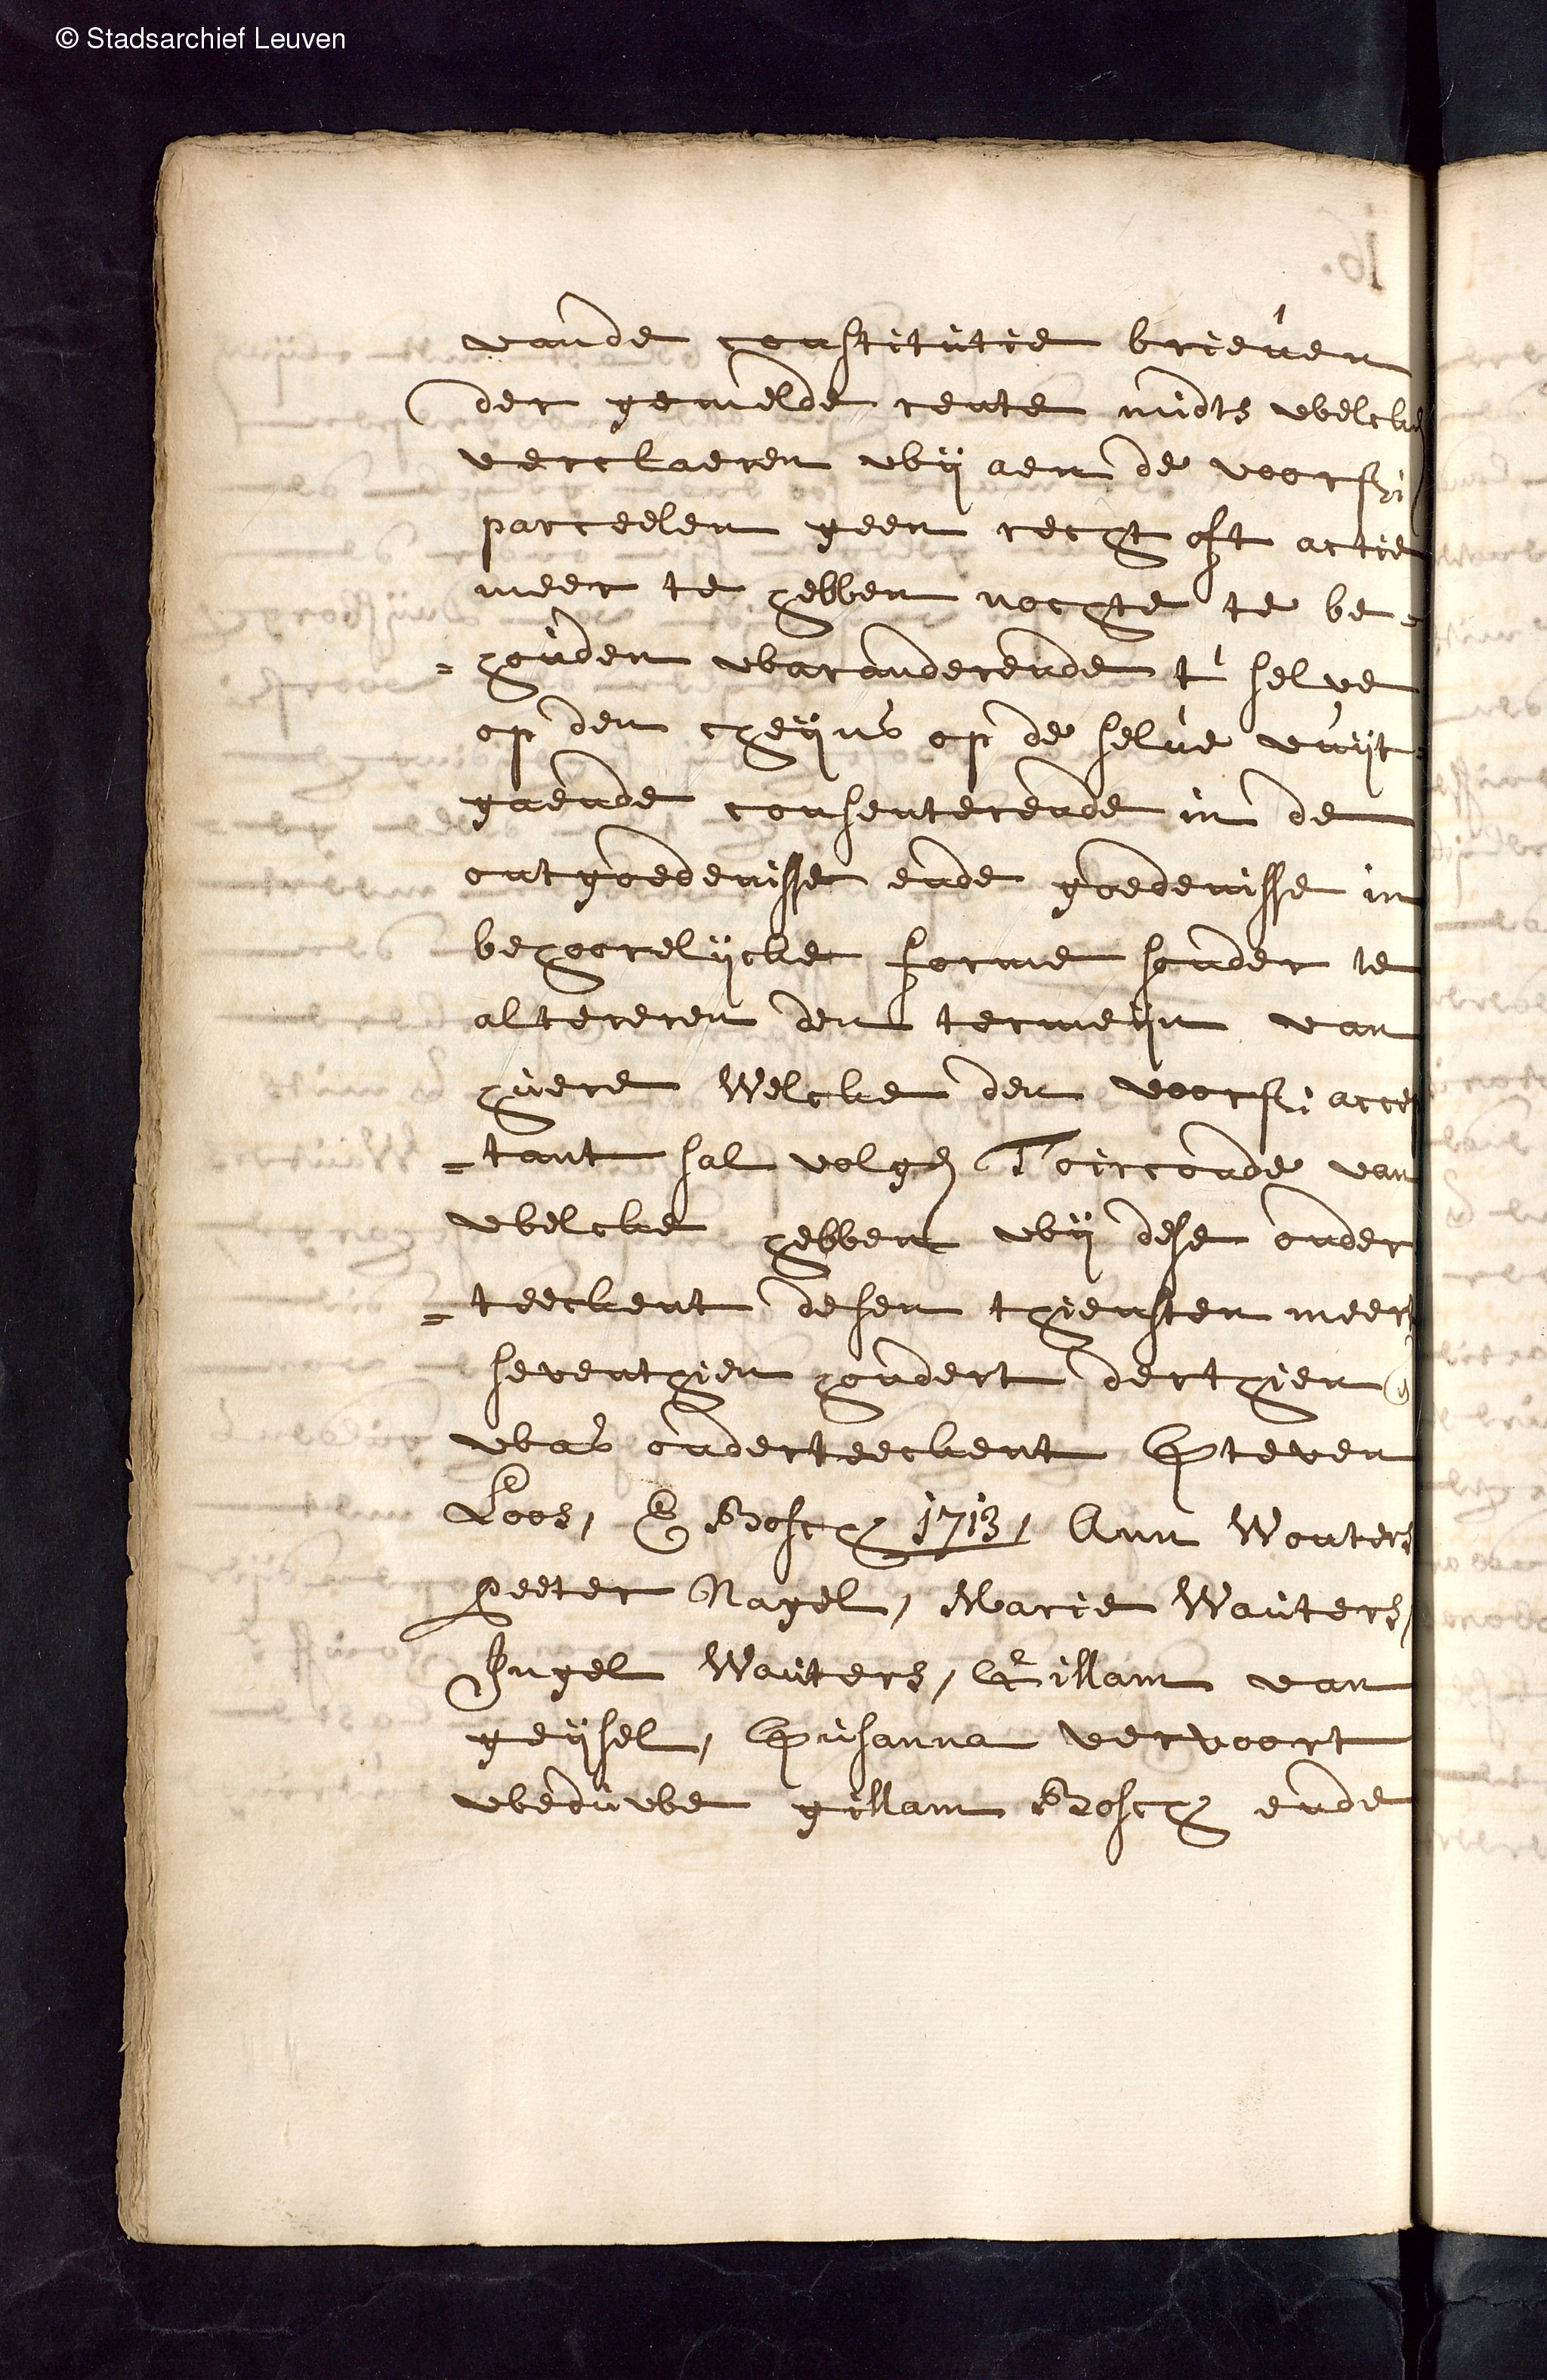 © Stadsarchief Leuven
vande constitutie brieven
der gemelde rente midts welcke
verclaeren wij aen de voors:
parceelen geen recht oft actie
meer te hebben nochte te be=
=houden waranderende t' selve
op den cheijns op de selve vuijt=
gaende consenterende in de
ontgoedenisse ende goedenisse in
behoorelijcke forme sonder te
altereren den termeijn van
huere Welcke den voors: accep
=tant sal volgen Toirconde van
welcke hebben wij dese onder
=teeckent desen thiensten meert
seventhien hondert derthien
was onderteeckent Steven
Loos, Bosch 1713, Ann Wouters
peeter Nagel, Marie Wauters,
Ingel Wauters, Gillam van
geijsel, Susanna vervoort
weduwe gillam Bosch ende